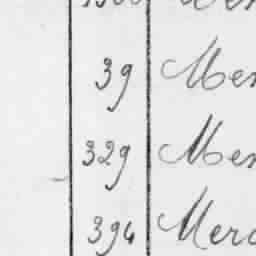 39 Mer
329 Mer
394 Merc